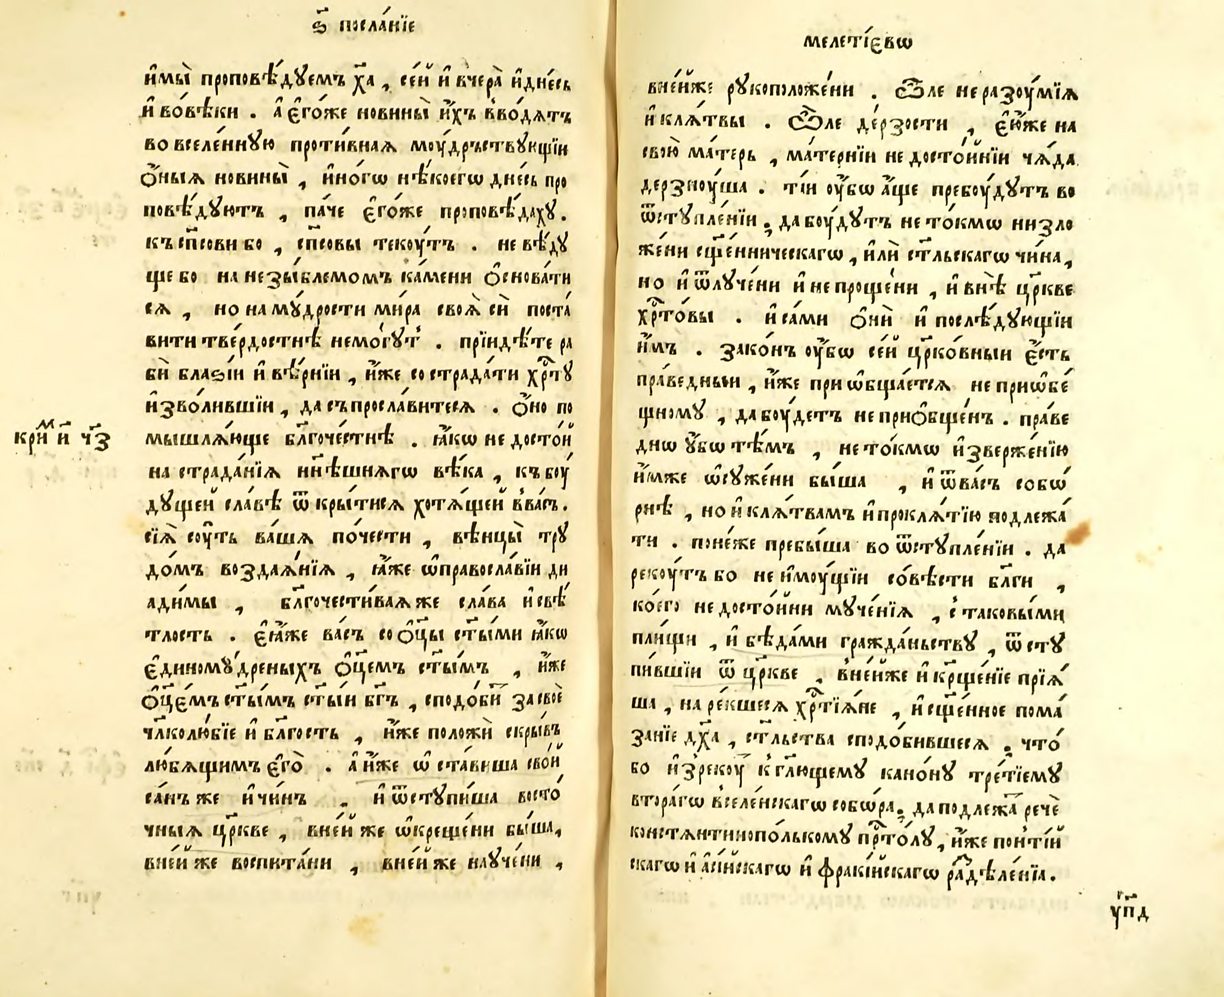 ѕ҃ посла́нїе
и҆мы̀ проповѣ́дуемъ х҃а , се́й и҆ вчера̀ и҆дне́сь
и҆ во́вѣки . а҆ є҆го́же новины̀ и҆́хъ вво́дятъ
во вселе́нную проти́вная моу́дръствующїи
ѻ҆́ныѧ новины̀ , и҆но́гѡ нѣ́коегѡ дне́сь про
повѣ́дуютъ , па́че є҆го́же проповѣ́даху .
къ сп҃сови бо , сп҃совы текоу́тъ . не вѣ́ду
ще бо на незы́блемомъ ка́мени ѻ҆снова́ти
сѧ , но на му́дрости ми́ра своѧ̀ сѝ поста́
вити тве́рдостнѣ немо́гут . прїидѣ́те ра
бѝ бл҃зїи и҆ вѣ́рнїи , и҆́же со страда́ти хр҃ту
и҆зво́лившїи , да съпросла́витесѧ . ѻ҆́но по
мышлѧ́юще бл҃гоче́стнѣ . ꙗ҆́кѡ не досто́и
на страда́нїѧ нн҃ѣшнѧгѡ вѣ́ка , къ боу́
дущей сла́вѣ ѿ кры́тисѧ хотѧ́щей в ва́съ .
сїѧ̀ соу́ть ва́шѧ по́чести , вѣнцы̀ тру
до́мъ воздаѧ́нїѧ , ꙗ҆́же ѡ҆правосла́вїи ди
адимы , бл҃гочести́ваѧ же сла́ва и҆ свѣ́
тлость . є҆ꙗ҆́же ва́съ со ѻ҆ц҃ы ст҃ы́ми ꙗ҆́кѡ
є҆диному́дреныхъ ѻ҆ц҃емъ ст҃ы́мъ , и҆́же
ѻ҆ц҃е́мъ ст҃ымъ ст҃ы́и бг҃ъ , сподо́би за своѐ
чл҃колю́бїе и҆ бл҃гость , и҆́же положѝ скры́въ
лю́бѧщимъ є҆го̀ . а҆ и҆́же ѡ҆ ста́виша сво́й
са́нъ же и҆ чи́нъ , и҆ ѿступи́ша восто́
чныѧ цр҃кве , вне́й же ѡ҆креще́ни бы́ша,
вне́й же воспита́ни , вне́й же науче́ни ,
кри҃м и҆ ч҃з
мелетїєвѡ
вне́йже рукоположе́ни . Ѽле неразоу́мїѧ
и҆ клѧ́твы . Ѽле де́рзости , є҆ю́же на
свою̀ ма́терь , ма́тернїи не досто́йнїи чѧ́да
дерзноу́ша . ті́и оу҆́бѡ а҆́ще пребоу́дутъ во
ѿступле́нїи , да боу́дутъ не то́кмѡ низло
же́ни сщ҃е́нническагѡ , и҆лѝ ст҃льскагѡ чи́на ,
но и҆ ѿлуче́ни и҆ не проще́ни , и҆ внѣ̀ цр҃кве
хр҃то́вы . и҆ са́ми ѻ҆нѝ и҆ послѣ́дующїи
и҆́мъ . зако́нъ оу҆́бѡ се́й цр҃ко́вныи є҆́сть
пра́ведныи , и҆́же при ѡ҆бща́етсѧ не приѡ҆бе́
щному , да боу́детъ не прио҆бще́нъ . пра́ве
днѡ у҆́бѡ тѣ́мъ , не то́кмѡ и҆зверже́нїю
и҆́мже ѡ҆суже́ни бы́ша , и҆ ѿ ва́съ собѡ́
рнѣ , но и҆ клѧ́твамъ и҆ проклѧ́тїю подлежа́
ти . поне́же пребы́ша во ѿступле́нїи . да
рекоу́тъ бо не и҆моу́щїи со́вѣсти бл҃ги ,
ко́его не досто́йни муче́нїѧ , с таковы́ми
пли́щи , и҆ бѣда́ми гражда́ньству , ѿсту
пи́вшїи ѿ цр҃кве , вне́йже и҆ кр҃ще́нїе прїѧ́
ша , на ре́кшесѧ хр҃тїѧ́не , и҆ сщ҃е́нное пома́
занїе дх҃а , ст҃льства сподо́бившесѧ , что́
бо и҆з̾рекоу́ к̾ гл҃ющему кано́ну тре́тїему
втора́гѡ вселе́нскагѡ собѡ́ра , да подлежа́ речѐ
константинопо́лькому пр҃то́лу , и҆́же понті́й
скагѡ и҆ а҆сі́йскагѡ и҆ фракі́йскагѡ раздѣле́нїа .
уп҃д